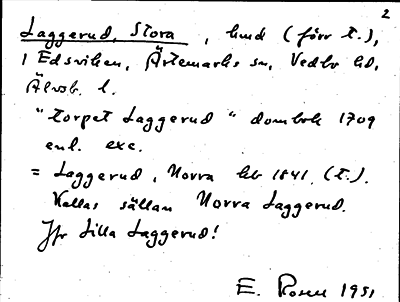 2
Laggerud, Stora, hmd (förr t.),
i Edsviken, Ärtemarks sn, Vedbo hd,
Älvsb. l.
"torpet Laggerud" dombok 1709
enl. exc.
= Laggerud, Norra hfb 1841 (t.).
Kallas sällan Norra Laggerud.
Jfr Lilla Laggerud!
E. Rosell 1951